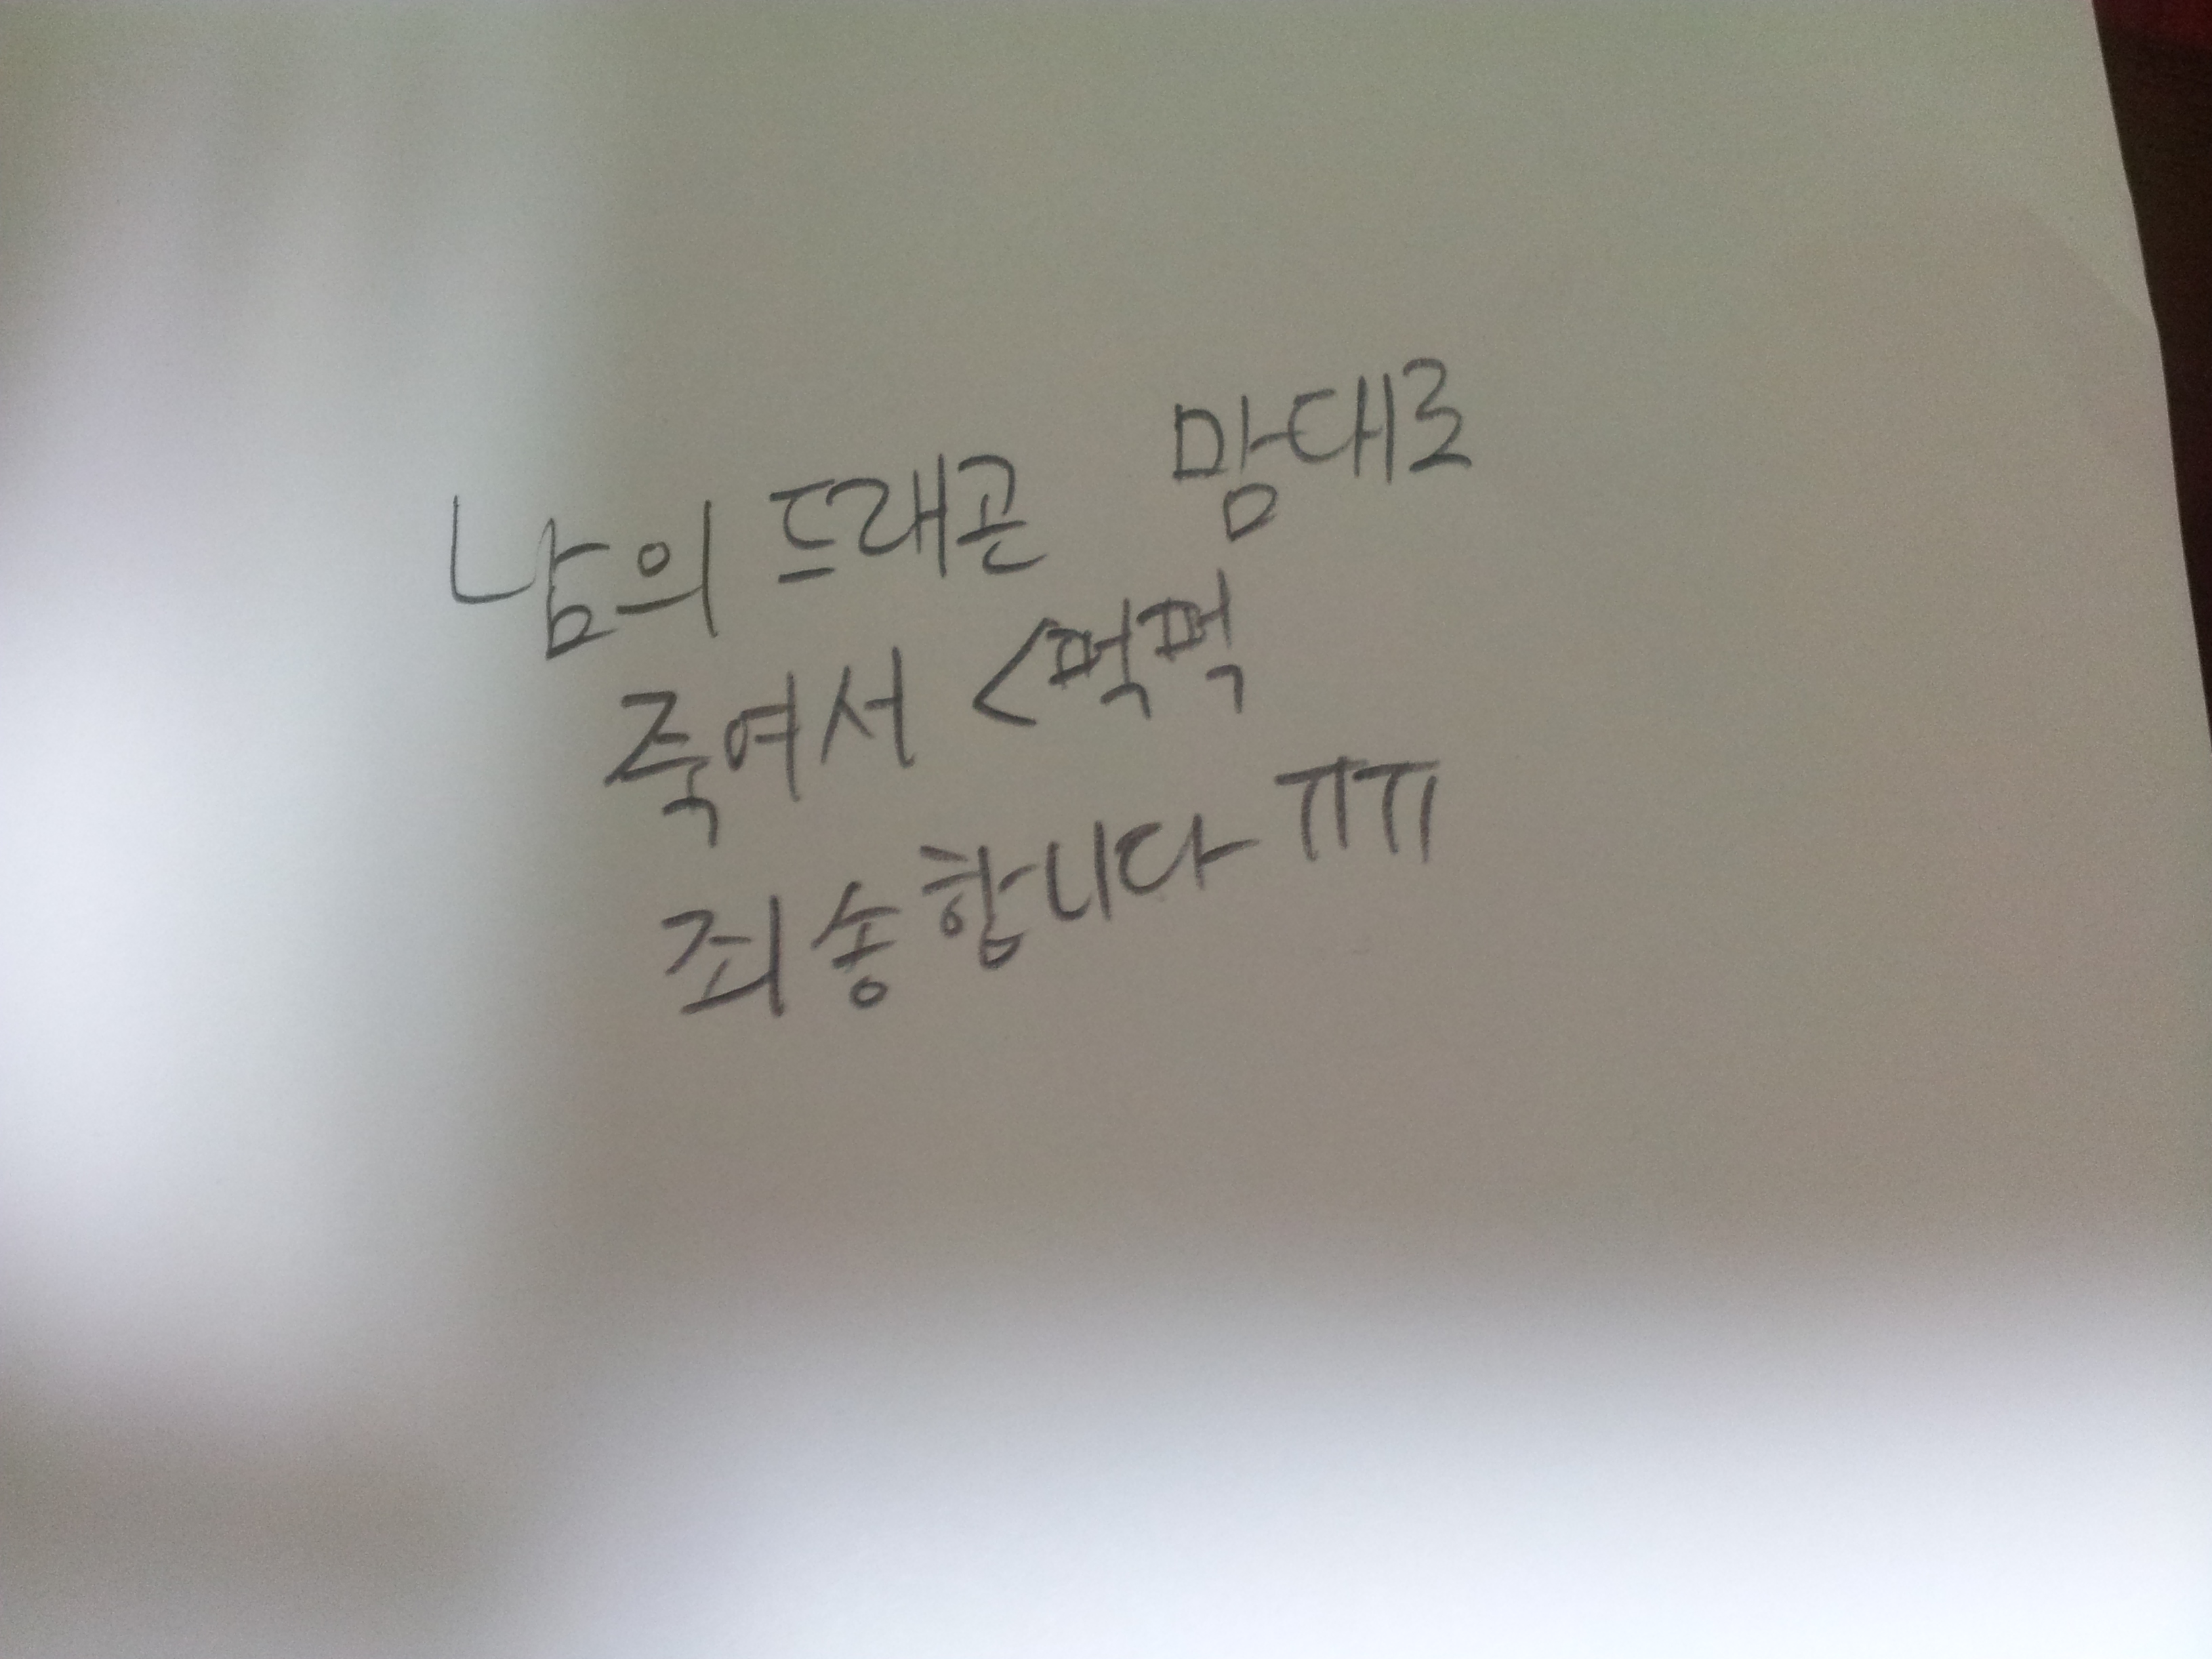 남의 드래곤 맘대로
죽여서 <퍽퍽
죄송합니다 ㅠㅠ